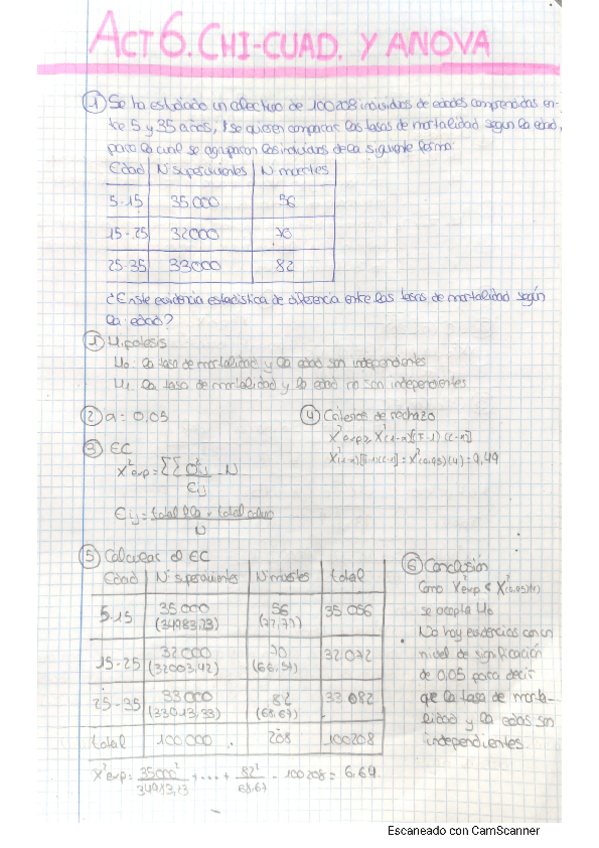 ACT 6. CHI-CUAD. Y ANOVA
1 Se ha estudiado un colectivo de 100208 individuos de edades comprendidas en-
tre 5 y 35 años, y se quieren comparar las tasas de mortalidad según la edad,
para lo cual se agruparon los individuos de la siguiente forma:
Edad Nº supervivientes Nº muertes
5-15 35000 56
15-25 32000 70
25-35 33000 82
¿Existe evidencia estadística de diferencia entre las tasas de mortalidad según
la edad?
1 Hipótesis
H₀: la tasa de mortalidad y la edad son independientes
H₁: la tasa de mortalidad y la edad no son independientes
2 α = 0,05
3 EC
X²exp = ΣΣ O²ij / eij - N
eij = total fila · total colum / N
4 Criterios de rechazo
X²exp ≥ X²(1-α)[(F-1)(C-1)]
= X²(0,95)(4) = 9,49
5 Calculas el EC
Edad Nº supervivientes Nº muertes total
5-15 35000 (34983,23) 56 (72,77) 35056
15-25 32000 (32003,42) 70 (66,57) 32072
25-35 33000 (33013,33) 82 (68,67) 33082
total 100000 208 100208
X²exp = 35000² / 34913,13 + ... + 82² / 68,67 - 100208 = 6,64.
6 Conclusión
Como X²exp < X²(0,95)(4)
se acepta H₀
No hay evidencias con un
nivel de significación
de 0,05 para decir
que la tasa de morta-
lidad y la edas son
independientes.
Escaneado con CamScanner